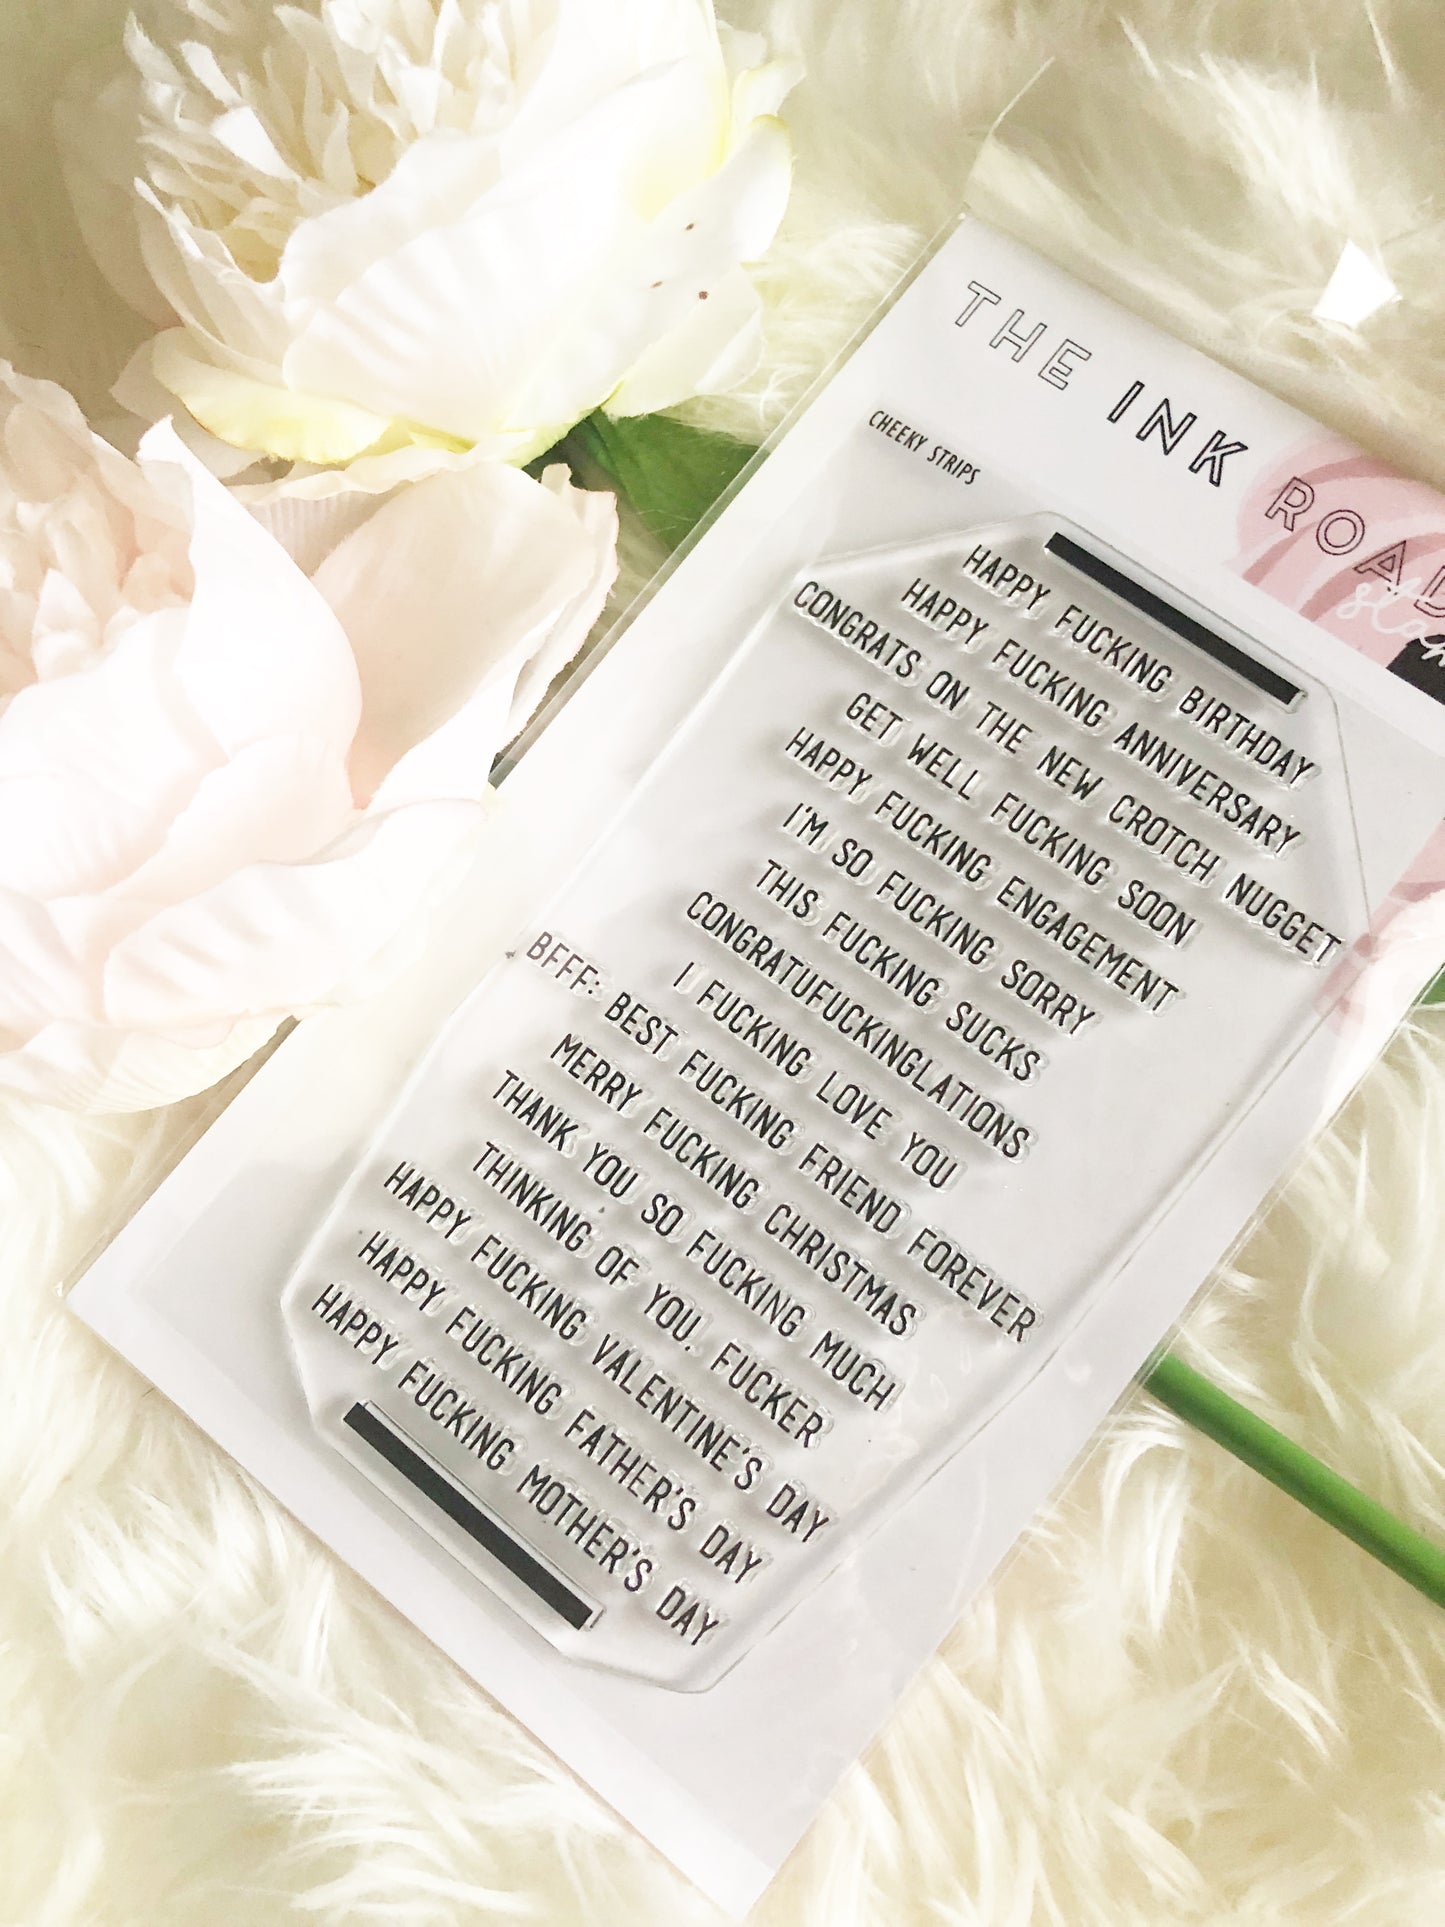 THE INK ROAD
CHEEKY STRIPS
HAPPY FUCKING BIRTHDAY
HAPPY FUCKING ANNIVERSARY
CONGRATS ON THE NEW CROTCH NUGGET
GET WELL FUCKING SOON
HAPPY FUCKING ENGAGEMENT
I'M SO FUCKING SORRY
THIS FUCKING SUCKS
CONGRATUFUCKINGLATIONS
I FUCKING LOVE YOU
BFFF: BEST FUCKING FRIEND FOREVER
MERRY FUCKING CHRISTMAS
THANK YOU SO FUCKING MUCH
THINKING OF YOU. FUCKER
HAPPY FUCKING VALENTINE'S DAY
HAPPY FUCKING FATHER'S DAY
HAPPY FUCKING MOTHER'S DAY